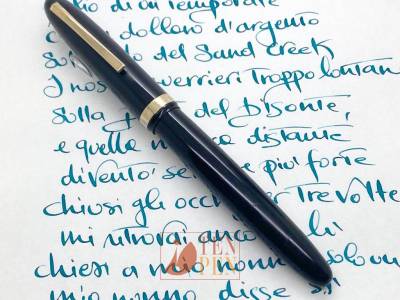 lio di un temporale
dollaro d'argento
del Sand Creek
I nos guerrieri troppo lontan
sulla del bisonte,
e quella distante
diventò se più forte
chiusi gli occ per Tre volte
mi ritrovai anco lì
chiesi a mio nonno solo un
mio nonno disse sì
TEN
PEN